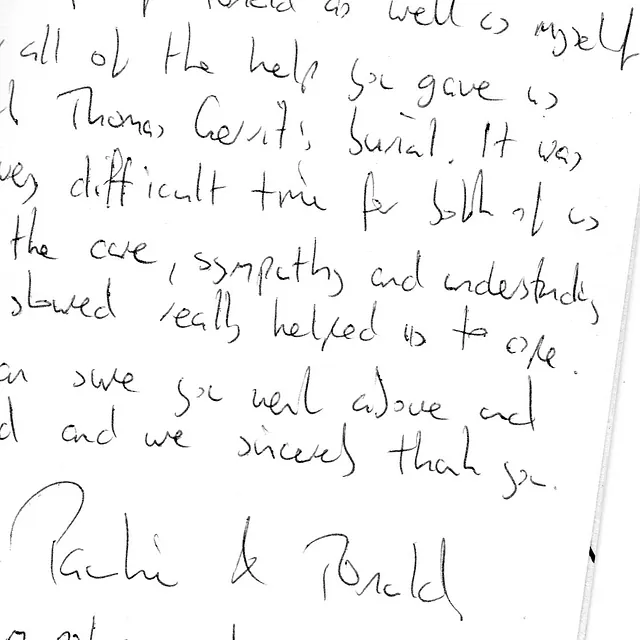 Ronald as well as myself
all of the help you gave us
Thomas Gerrit's burial. It was
very difficult time for both of us
the care, sympathy and understanding
showed really helped us to cope.
sure you went above and
and we sincerely thank you.
& Ronald